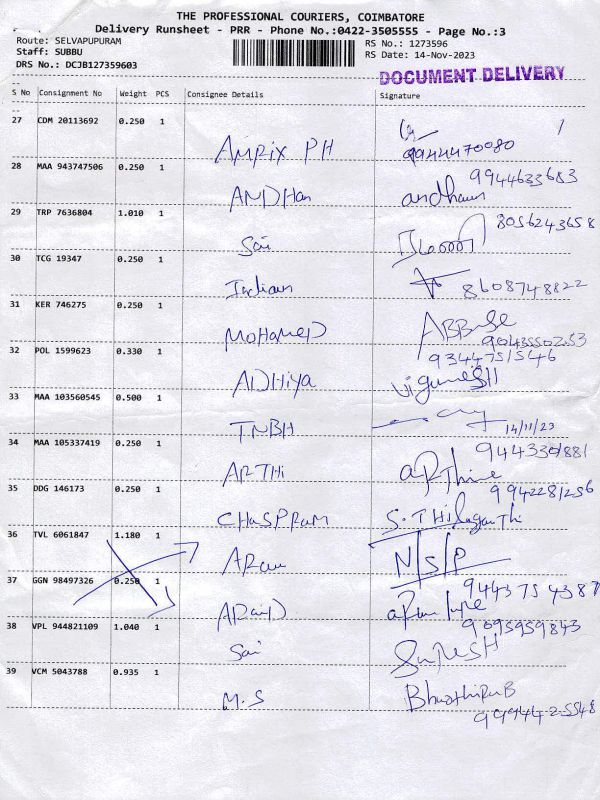 THE PROFESSIONAL COURIERS, COIMBATORE
Delivery Runsheet - PRR - Phone No.:0422-3505555 - Page No.:3
Route: SELVAPUPURAM
Staff: SUBBU
DRS No.: DCJB127359603
RS No.: 1273596
RS Date: 14-Nov-2023
DOCUMENT DELIVERY
S No Consignment No Weight PCS Consignee Details Signature
27 CDM 20113692 0.250 1
AMPIX PH 9944470080
28 MAA 943747506 0.250 1
ANDHan andhaun 9944633683
29 TRP 7636804 1.010 1
Sai 8056243658
30 TCG 19347 0.250 1
Indian 8608748822
31 KER 746275 0.250 1
MOHAMED ABBase 9043550253
32 POL 1599623 0.330 1
9344751546
ADHIYA
33 MAA 103560545 0.500 1
TNBH 14/11/23
34 MAA 105337419 0.250 1
9443301881
ARTHI
35 DDG 146173 0.250 1
9942281256
CHASPRAM S.
36 TVL 6061847 1.180 1
ARau N/S/P
37 GGN 98497326 0.250 1
9443754387
38 VPL 944821109 1.040 1
9095959843
Sai SURESH
39 VCM 5043788 0.935 1
M.S
9994425548